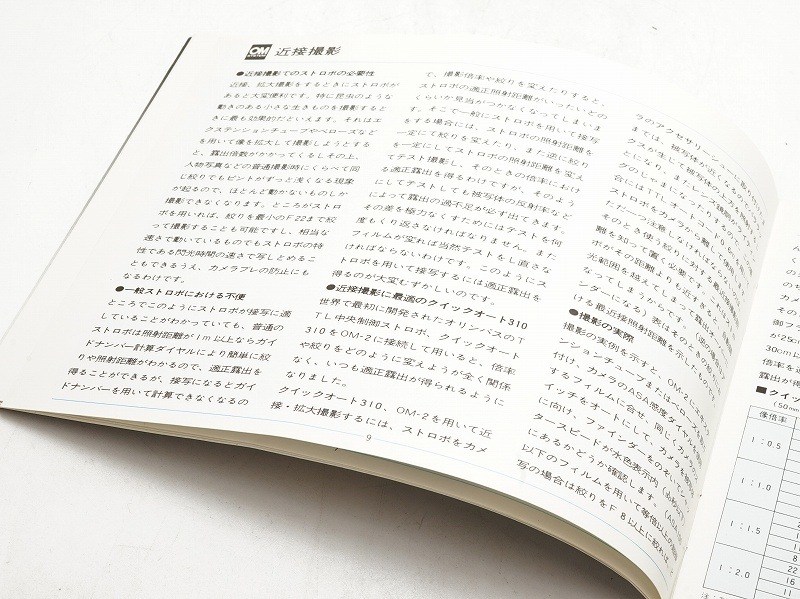 OM
近接撮影
●近接撮影でのストロボの必要性
近接、拡大撮影をするときにストロボが
あると大変便利です。特に昆虫のような
動きのある小さな生きものを撮影すると
きに最も効果的だといえます。それはエ
クステンションチューブやベローズなど
を用いて像を拡大して撮影しようとする
と、露出倍数がかかってくるしその上、
人物写真などの普通撮影時にくらべて同
じ絞りでもピントがずっと浅くなる現象
が起るので、ほとんど動かないものしか
撮影できなくなります。ところがストロ
ボを用いれば、絞りを最小のF22まで絞
って撮影することも可能ですし、相当な
速さで動いているものでもストロボの特
性である閃光時間の速さで写しとめるこ
ともできるうえ、カメラブレの防止にも
なるわけです。
●一般ストロボにおける不便
ところでこのようにストロボが接写に適
していることがわかっていても、普通の
ストロボは照射距離が1m以上ならガイ
ドナンバー計算ダイヤルにより簡単に絞
りや照射距離がわかるので、適正露出を
得ることができるが、接写になるとガイ
ドナンバーを用いて計算できなくなるの
て、撮影倍率や絞りを変えたりすると、
ストロボの適正照射距離がいったいどの
くらいか見当がつかなくなってしまいま
す。そこで一般にストロボを用いて接写
をする場合には、ストロボの照射距離を
一定にて絞りを変えたり、また逆に絞り
を一定にしてストロボの照射距離を変え
てテスト撮影し、そのときの倍率におけ
る適正露出を得るわけですが、そのよう
にしてテストしても被写体の反射率など
によって露出の過不足が必ず出てきます。
その差を極力なくすためにはテストを何
度もくり返さなければなりません。また
フィルムが変れば当然テストをし直さな
ければならないわけです。このようにス
トロボを用いて接写するには適正露出を
得るのが大変むずかしいのです。
●近接撮影に最適のクイックオート310
世界で最初に開発されたオリンパスのT
TL中央制御ストロボ、クイックオート
310をOM-2に接続して用いると、倍率
や絞りをどのように変えようが全く関係
なく、いつも適正露出が得られるように
なりました。
クイックオート310、OM-2を用いて近
接・拡大撮影するには、ストロボをカメ
9
ラのアクセサリーシュー
までは、被写体が近くなる
クスが生じて被写体から
とになり、またレンズ鏡胴が
グのじゃまになったりする
合にはTTLオートコード
ストロボをカメラから離して使用
ただ一つ注意しなければならない
そのとき使う絞りに対する最近接
離を知って置く必要があります。
ボがその距離よりも近すぎると
光範囲を越えてしまって露出
なってしまうからです。
ンダーになる）表はそのときの
ける最近接照射距離を示したものです。
●撮影の実際
撮影の実例を示すと、OM-2にエクステ
ンションチューブまたはベローズを取り
付け、カメラのASA感度ダイヤルを
するフィルムに合せ、同じくカメラの
イッチをオートにして、カメラを
に向け、ファインダーをのぞいて
タースピードが水色表示内
にあるかどうか確認します。
以下のフィルムを用いて等倍以上の
写の場合は絞りをF8以上に絞れば
が25c
30cm以
倍率を
露出が得
■クイッ
(50mm
像倍率
1：0.5
1：1.0
1：1.5
1：2.0
8
22
16
11
注：